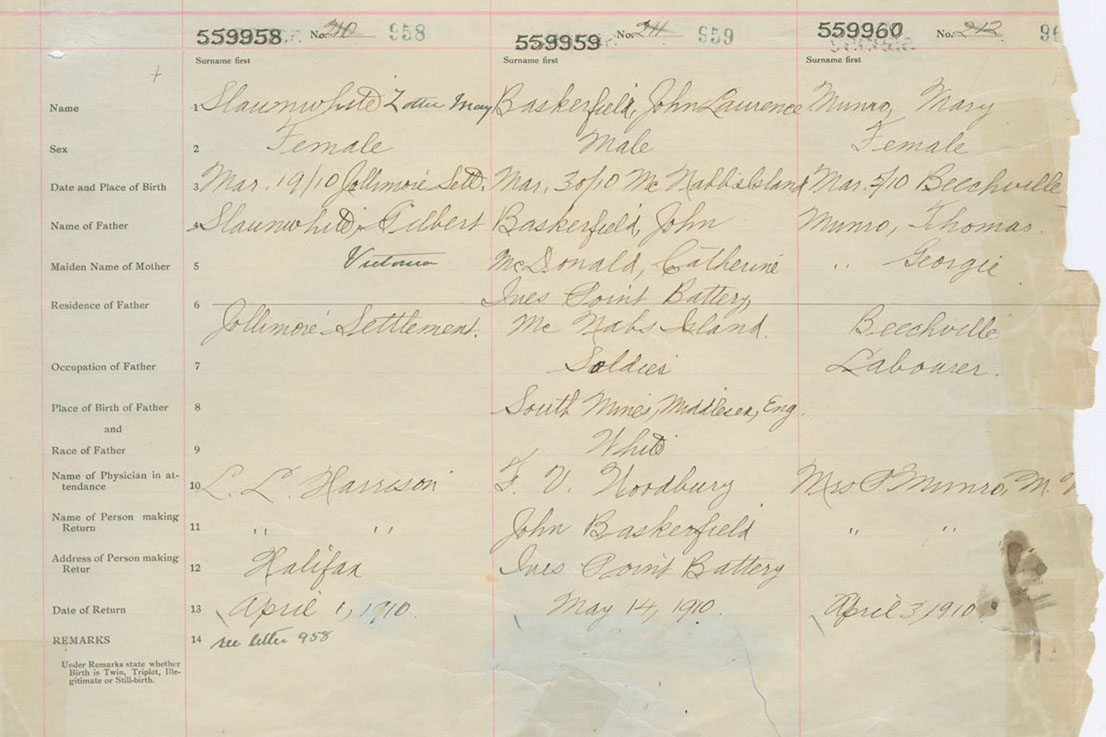 559958 No. 210 958 559959 No. 211 959 559960 No. 212 96
Surname first Surname first Surname first
Name 1 Slaunwhite Lottie May Baskerfield, John Laurence Munro, Mary
Sex 2 Female Male Female
Date and Place of Birth 3 Mar. 19/10 Jollimore Sett. Mar. 30/10 McNabb's Island Mar. 5/10 Beechville
Name of Father 4 Slaunwhite, Gilbert Baskerfield, John Munro, Thomas.
Maiden Name of Mother 5 Victoria McDonald, Catherine " Georgie
Residence of Father 6 Ives Point Battery,
Jollimore Settlement. McNabs Island. Beechville
Occupation of Father 7 Soldier Labourer.
Place of Birth of Father 8 South Mines, Middlesex, Eng.
and
Race of Father 9 White
Name of Physician in at-
tendance 10 L. L. Harrison F. V. Woodbury Mrs Munro, M.
Name of Person making
Return 11 " " John Baskerfield " "
Address of Person making
Retur 12 Halifax Ives Point Battery
Date of Return 13 April 1, 1910. May 14, 1910. April 3, 1910.
REMARKS 14 see letter 958
Under Remarks state whether
Birth is Twin, Triplet, Ille-
gitimate or Still-birth.